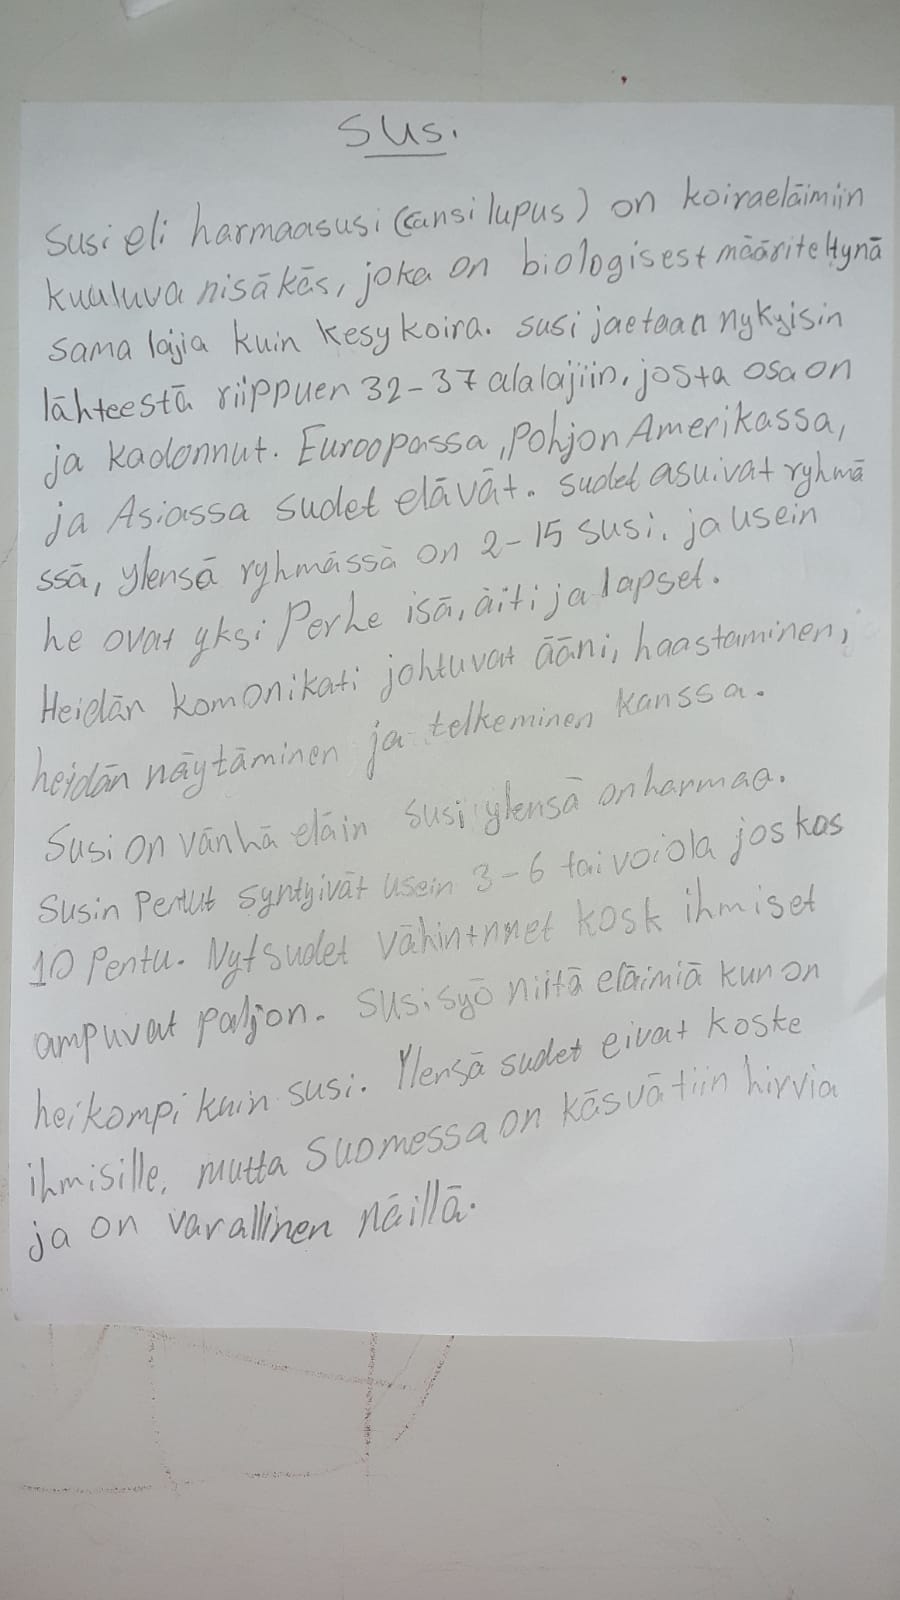 Susi
Susi eli harmaasusi (cansi lupus) on koiraeläimiin
kuuluva nisäkäs, joka on biologisest määriteltynä
sama lajia kuin kesykoira. susi jaetaan nykyisin
lähteestä riippuen 32-37 alalajiin, josta osa on
ja kadonnut. Euroopassa, Pohjon Amerikassa,
ja Asiassa sudet elävät. sudet asuivat ryhmä
ssä, ylensä ryhmässä on 2-15 susi, ja usein
he ovat yksi Perhe isä, äiti ja lapset.
Heidän komonikati johtuvat ääni, haastaminen,
heidän näytäminen ja telkeminen kanssa.
Susi on vänhä eläin susi ylensä on harmaa.
Susin Pentut syntyivät usein 3-6 tai voi ola joskos
10 Pentu. Nyt sudet kosk ihmiset
ampuvat paljon. susi syö niitä eläimiä kun on
heikompi kuin susi. Ylensä sudet eivat koske
ihmisille, mutta Suomessa on käsvätiin hirvia
ja on varallinen näillä.